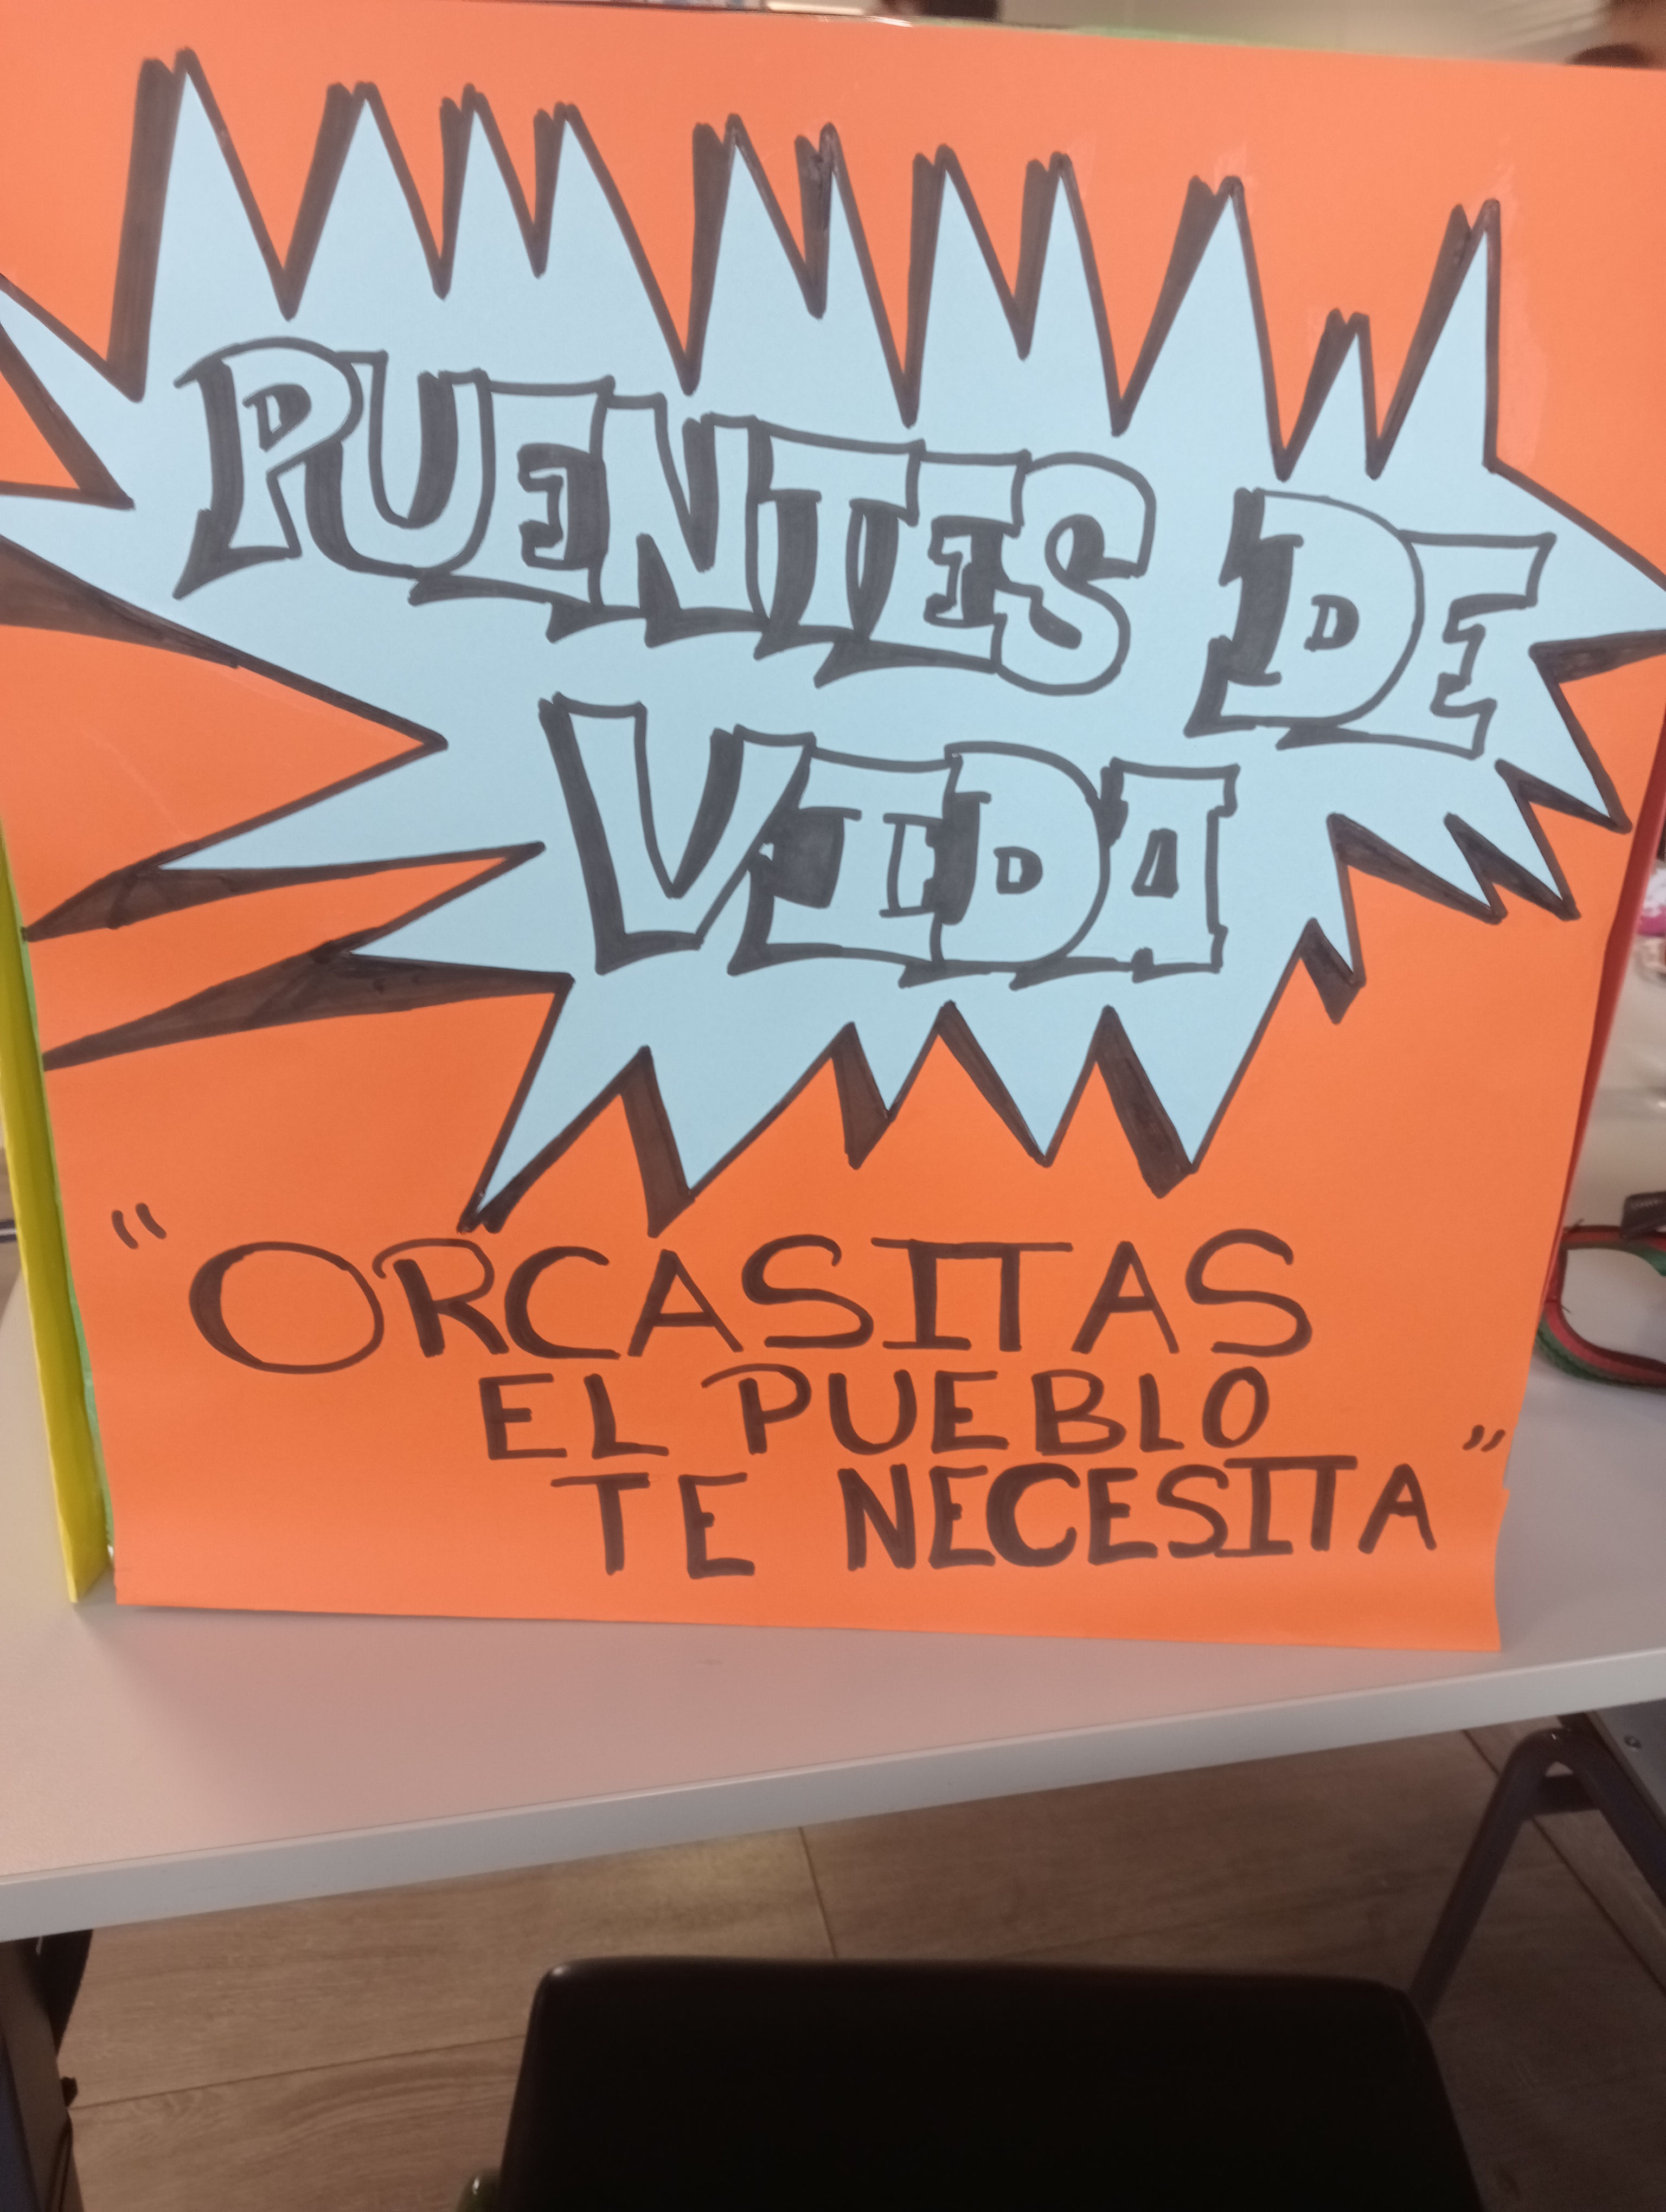 PUENTES DE
VIDA
"ORCASITAS
EL PUEBLO
TE NECESITA"